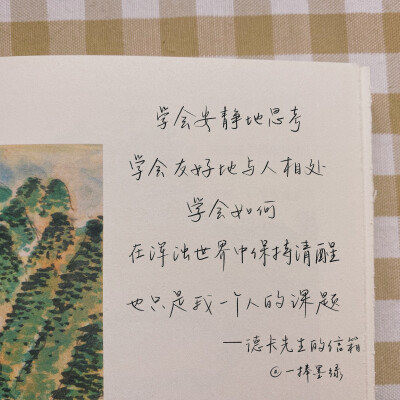 学会安静地思考
学会友好地与人相处
学会如何
在浑浊世界中保持清醒
也只是我一个人的课题
——德卡先生的信箱
@一捧墨绿